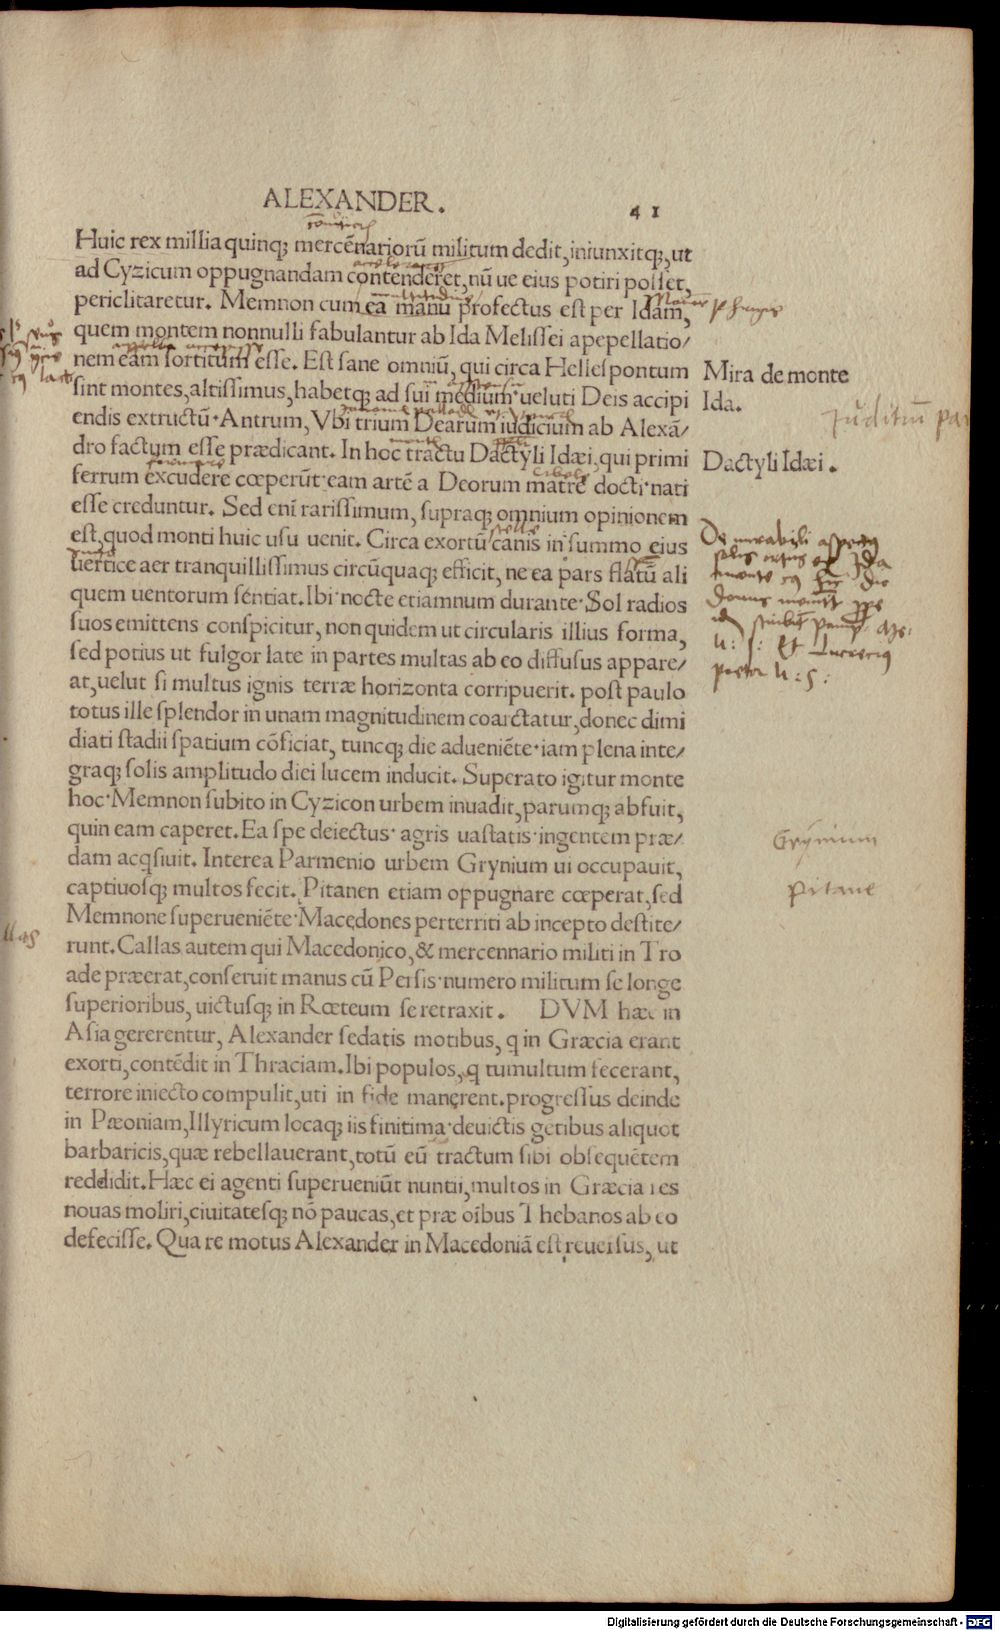 ALEXANDER.
41
Huic rex millia quinq; mercēnariorū militum dedit, iniunxitq;, ut
ad Cyzicum oppugnandam contenderet, nū ue eius potiri posset,
periclitaretur. Memnon cum ea manu profectus est per Idam,
quem montem nonnulli fabulantur ab Ida Melissei apepellatio/
nem eam sortitum esse. Est sane omniū, qui circa Hellespontum
sint montes, altissimus, habetq; ad sui medium·ueluti Deis accipi
endis extructū·Antrum, Vbi trium Dearum iudicium ab Alexā/
dro factum esse prædicant. In hoc tractu Dactyli Idæi, qui primi
ferrum excudere cœperūt·eam artē a Deorum matre docti·nati
esse creduntur. Sed eni rarissimum, supraq; omnium opinionem
est, quod monti huic usu uenit. Circa exortū canis in summo eius
uertice aer tranquillissimus circūquaq; efficit, ne ea pars flatū ali
quem uentorum séntiat. Ibi·nocte etiamnum durante·Sol radios
suos emittens conspicitur, non quidem ut circularis illius forma,
sed potius ut fulgor late in partes multas ab eo diffusus appare/
at, uelut si multus ignis terræ horizonta corripuerit. post paulo
totus ille splendor in unam magnitudinem coarctatur, donec dimi
diati stadii spatium cōficiat, tuncq; die adueniēte·iam plena inte/
graq; solis amplitudo diei lucem inducit. Superato igitur monte
hoc·Memnon subito in Cyzicon urbem inuadit, parumq; abfuit,
quin eam caperet. Ea spe deiectus·agris uastatis·ingentem præ/
dam acqsiuit. Interea Parmenio urbem Grynium ui occupauit,
captiuosq; multos fecit. Pitanen etiam oppugnare cœperat, sed
Memnone superueniēte·Macedones perterriti ab incepto destite/
runt. Callas autem qui Macedonico, & mercennario militi in Tro
ade præerat, conseruit manus cū Persis·numero militum se longe
superioribus, uictusq; in Rœteum se retraxit. DVM hæc in
Asia gererentur, Alexander sedatis motibus, q in Græcia erant
exorti, contēdit in Thraciam. Ibi populos, q tumultum fecerant,
terrore iniecto compulit, uti in fide manerent. progressus deinde
in Pæoniam, Illyricum locaq; iis finitima·deuictis getibus aliquot
barbaricis, quæ rebellauerant, totū eū tractum sibi obsequētem
reddidit. Hæc ei agenti superueniūt nuntii, multos in Græcia res
nouas moliri, ciuitatesq; nō paucas, et præ oībus Thebanos ab eo
defecisse. Qua re motus Alexander in Macedoniā est reuersus, ut
Mira de monte
Ida.
Iuditiū par
Dactyli Idæi.
De mirabili aspectu
solis ortus ex Ida
Grynium
pitane
llas
Digitalisierung gefördert durch die Deutsche Forschungsgemeinschaft - DFG